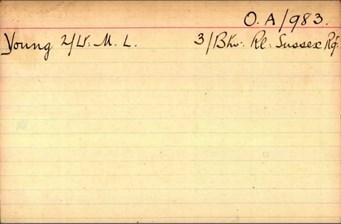 O.A/983.
Young 2/Lt. M. L. 3/Bn. Rl. Sussex Rg.